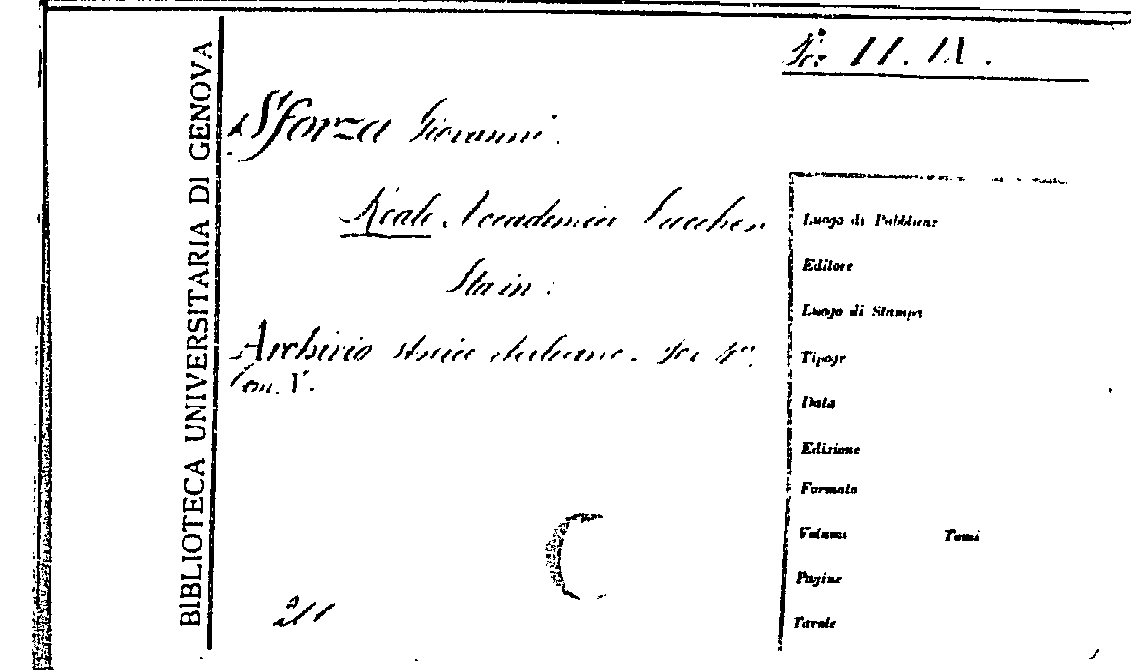 BIBLIOTECA UNIVERSITARIA DI GENOVA
Per II. IX.
Sforza Giovanni.
Reale Accademia Lucchese
Archivio storico italiano. Ser 4ª.
Tom. V.
Luogo di Pubblicaz
Editore
Luogo di Stampa
Tipogr
Data
Edizione
Formato
Volumi Tomi
Pagine
Tavole